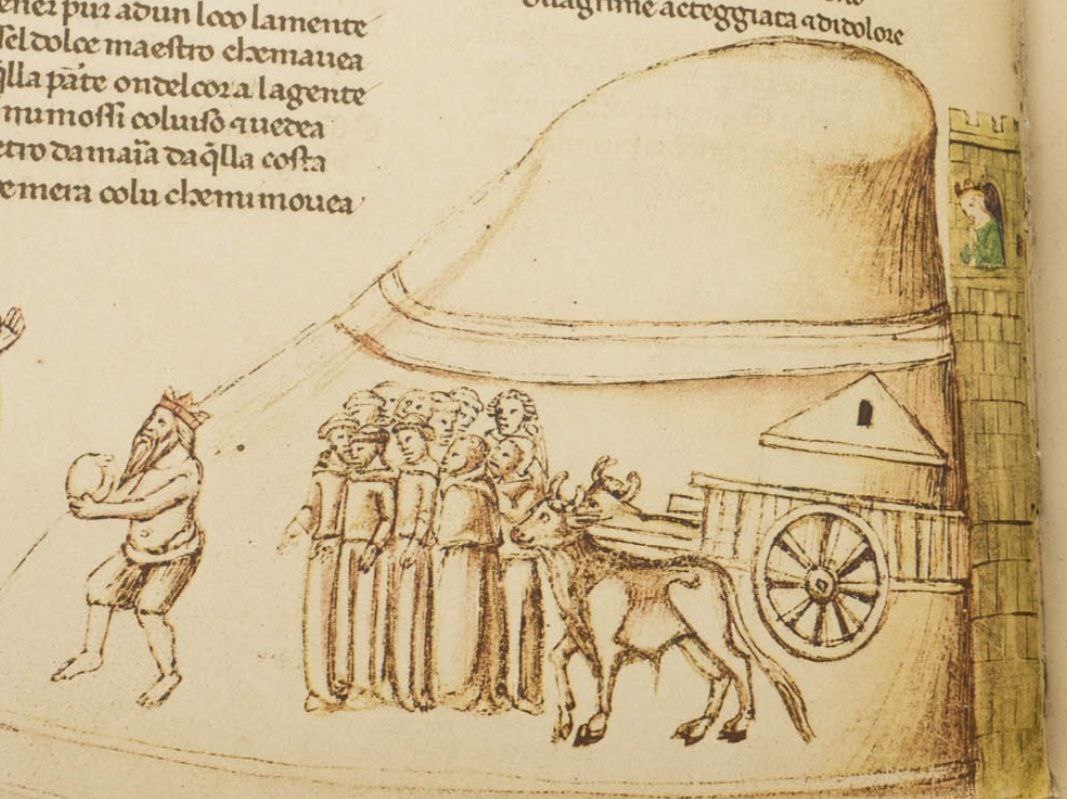 ener pur adun loco lamente
sel dolce maestro chemauea
q̄lla pāte ondelcora lagente
mimossi coluiso ⁊uedea
etro damaīa daq̄lla costa
emera colu chemimouea
lagrime acteggiata ⁊didolore